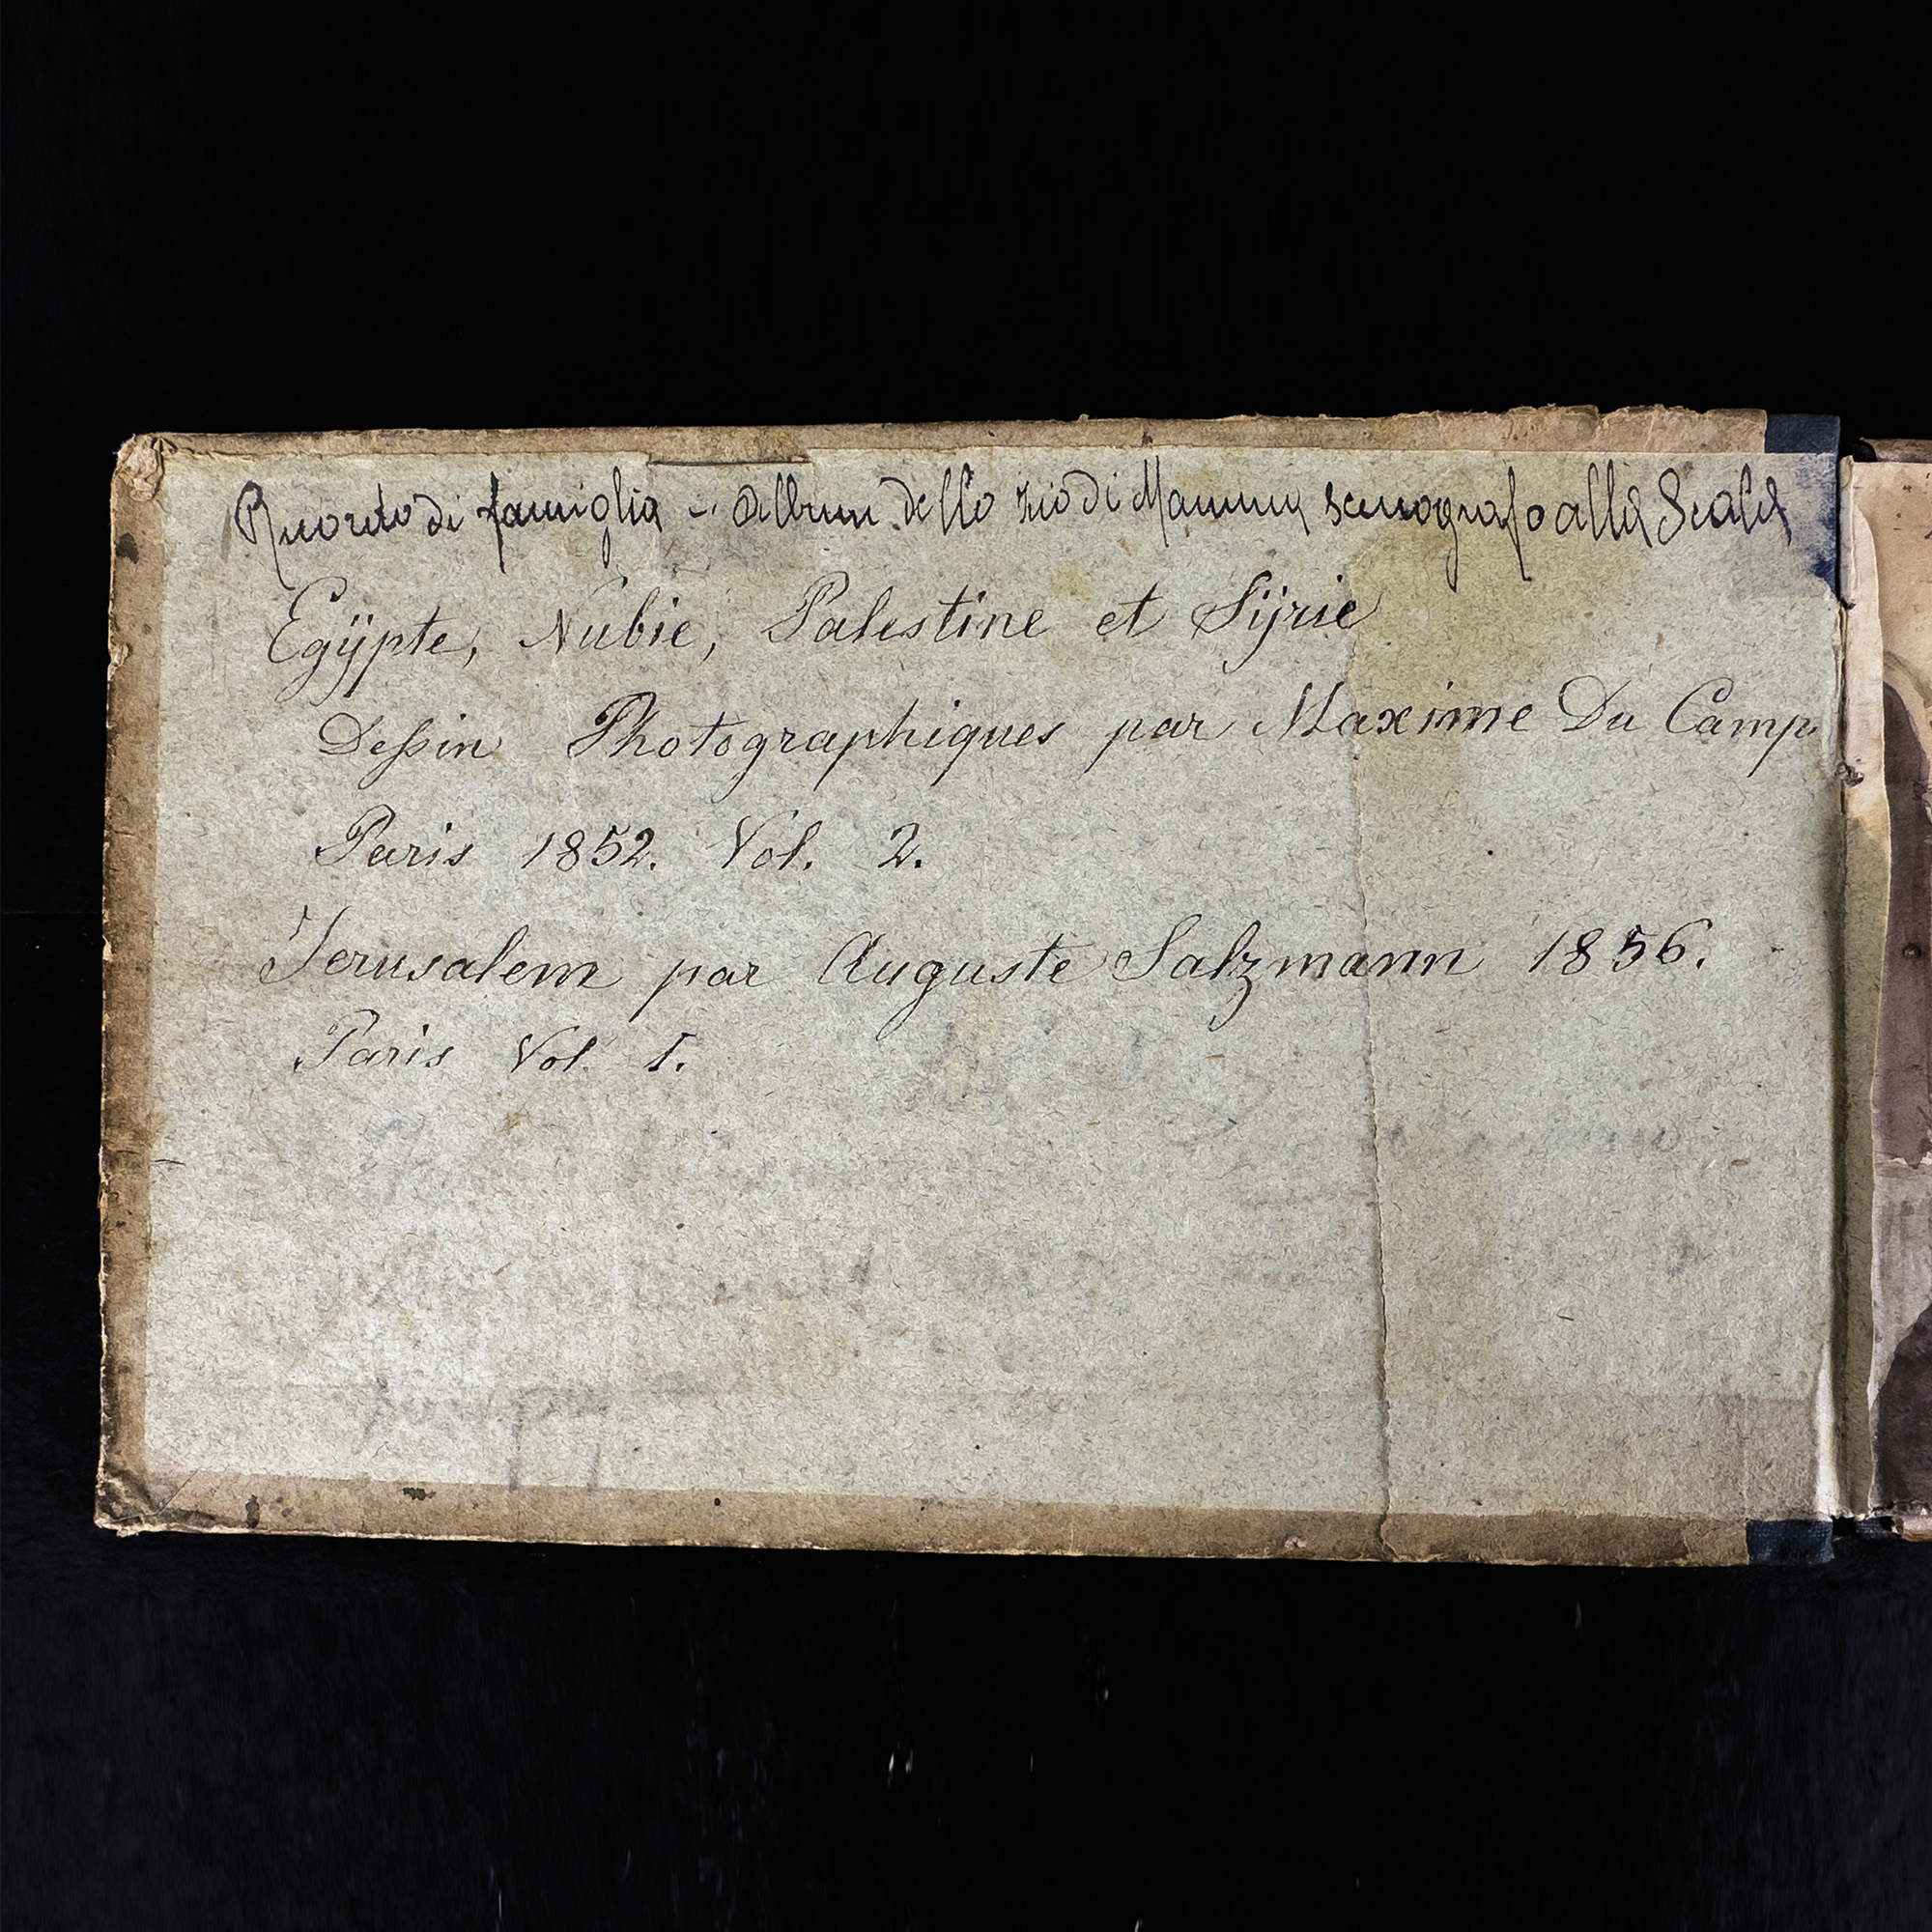 Ricordo di famiglia - Album dello zio di Mamma scenografo alla Scala
Egÿpte, Nubie, Palestine et Sÿrie
Deſsin Photographiques par Maxime Du Camp
Paris 1852. Vol. 2.
Jerusalem par Auguste Salzmann 1856.
Paris Vol. I.